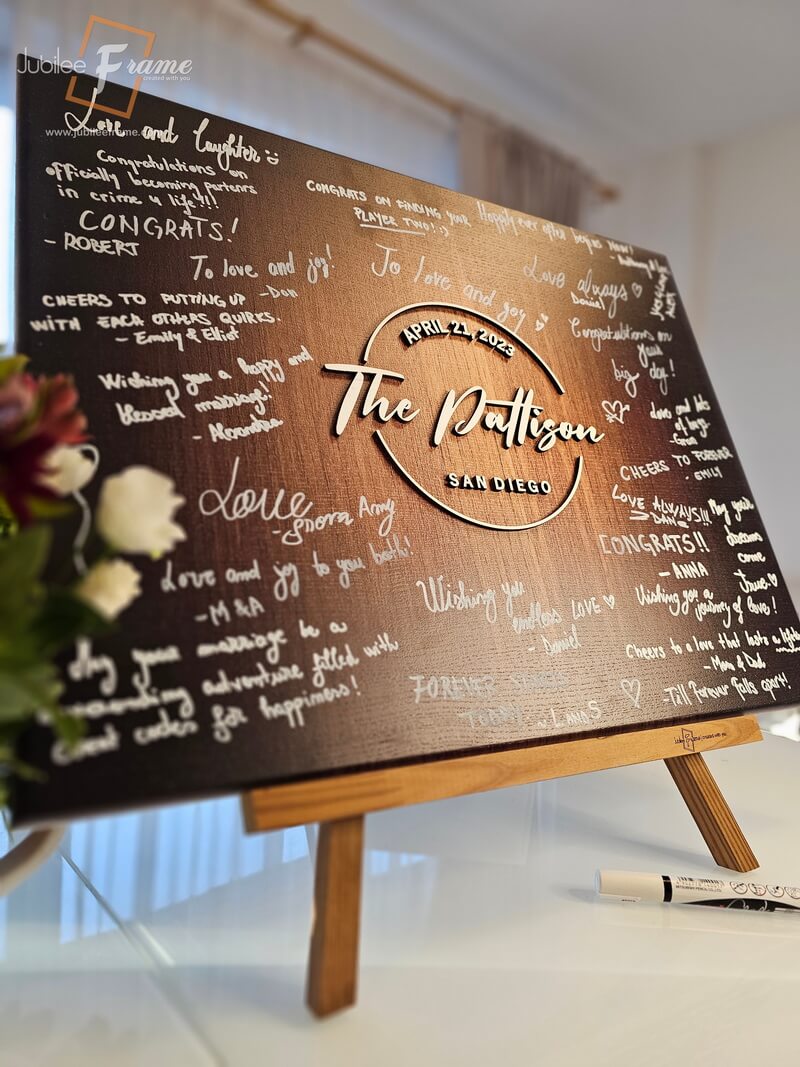 Jubilee Frame
created with you
www.jubileeframe.
Love and laughter
Congratulations on
officially becoming partners
in crime 4 life!!!
CONGRATS!
- ROBERT
CONGRATS ON FINDING YOUR
PLAYER TWO! :)
Happily ever after begins now!
To love and joy!
- Dan
To love and joy
Love always
Daniel
CHEERS TO PUTTING UP
WITH EACH OTHERS QUIRKS.
- Emily & Elliot
Congratulations on
your
big day!
APRIL 21, 2023
The Pattison
SAN DIEGO
Wishing you a happy and
blessed marriage!
- Alexandra
and
of hugs
CHEERS TO FOREVER
- EMILY
Love
Amy
LOVE ALWAYS!!!
DAN
CONGRATS!!
- ANNA
May your
dreams
come
true
Love and joy to you both!
- M & A
Wishing you
endless LOVE
- Daniel
Wishing you a
journey of love!
May your marriage be a
adventure filled with
cheat codes for happiness!
Cheers to a love that lasts a
- Mom & Dad
FOREVER
TODAY
- Till forever falls apart!
created with you